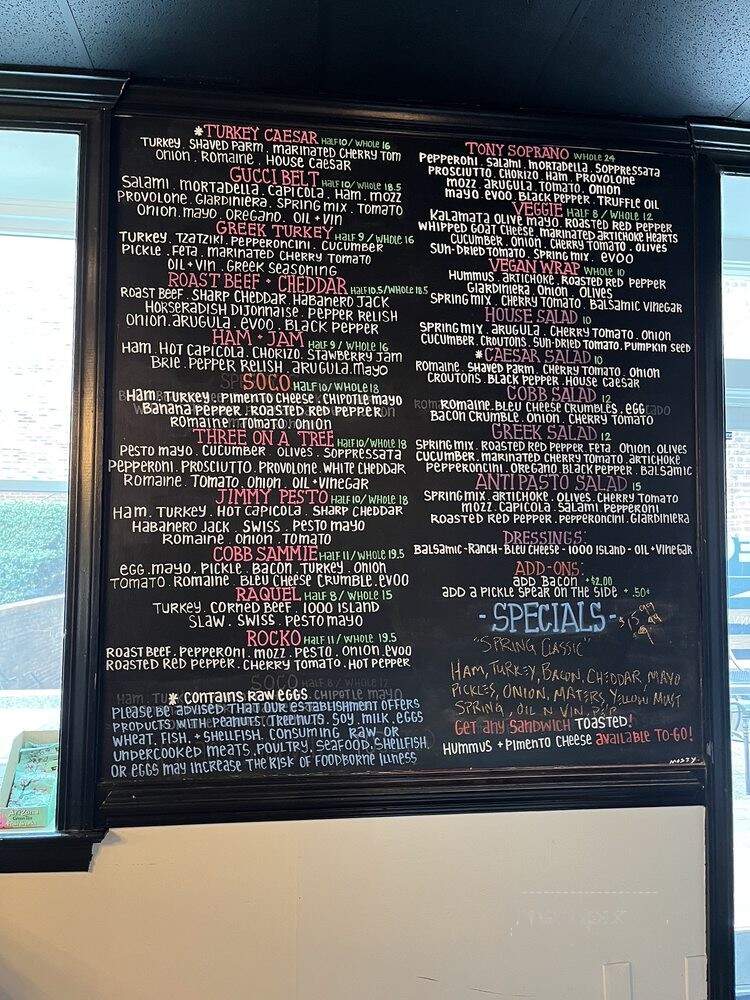 *TURKEY CAESAR HALF 10 / WHOLE 16
TURKEY . SHAVED PARM . MARINATED CHERRY TOM
ONION . ROMAINE . HOUSE CAESAR
GUCCI BELT HALF 10 / WHOLE 18.5
SALAMI . MORTADELLA . CAPICOLA . HAM . MOZZ
PROVOLONE . GIARDINIERA . SPRING MIX . TOMATO
ONION . MAYO . OREGANO . OIL + VIN
GREEK TURKEY HALF 9 / WHOLE 16
TURKEY . TZATZIKI . PEPPERONCINI . CUCUMBER
PICKLE . FETA . MARINATED CHERRY TOMATO
OIL + VIN . GREEK SEASONING
ROAST BEEF + CHEDDAR HALF 10.5 / WHOLE 18.5
ROAST BEEF . SHARP CHEDDAR HABANERO JACK
HORSERADISH DIJONNAISE . PEPPER RELISH
ONION . ARUGULA . EVOO . BLACK PEPPER
HAM + JAM HALF 9 / WHOLE 16
HAM . HOT CAPICOLA . CHORIZO . STAWBERRY JAM
BRIE . PEPPER RELISH . ARUGULA . MAYO
SOCO HALF 10 / WHOLE 18
HAM . TURKEY . PIMENTO CHEESE . CHIPOTLE MAYO
BANANA PEPPER . ROASTED RED PEPPER
ROMAINE . TOMATO . ONION
THREE ON A TREE HALF 10 / WHOLE 18
PESTO MAYO . CUCUMBER . OLIVES . SOPPRESSATA
PEPPERONI . PROSCIUTTO . PROVOLONE . WHITE CHEDDAR
ROMAINE . TOMATO . ONION . OIL + VINEGAR
JIMMY PESTO HALF 10 / WHOLE 18
HAM . TURKEY . HOT CAPICOLA . SHARP CHEDDAR
HABANERO JACK . SWISS . PESTO MAYO
ROMAINE . ONION . TOMATO
COBB SAMMIE HALF 11 / WHOLE 19.5
EGG . MAYO . PICKLE . BACON . TURKEY . ONION
TOMATO . ROMAINE . BLEU CHEESE CRUMBLE . EVOO
RAQUEL HALF 8 / WHOLE 15
TURKEY . CORNED BEEF . 1000 ISLAND
SLAW . SWISS . PESTO MAYO
ROCKO HALF 11 / WHOLE 19.5
ROAST BEEF . PEPPERONI . MOZZ . PESTO . ONION . EVOO
ROASTED RED PEPPER . CHERRY TOMATO . HOT PEPPER
SOCO HALF 8 / WHOLE 12
* CONTAINS RAW EGGS
PLEASE BE ADVISED THAT OUR ESTABLISHMENT OFFERS
PRODUCTS WITH PEANUTS . TREENUTS . SOY . MILK . EGGS
WHEAT, FISH, + SHELLFISH. CONSUMING RAW OR
UNDERCOOKED MEATS, POULTRY, SEAFOOD, SHELLFISH,
OR EGGS MAY INCREASE THE RISK OF FOODBORNE ILLNESS
TONY SOPRANO WHOLE 24
PEPPERONI . SALAMI . MORTADELLA . SOPPRESSATA
PROSCIUTTO . CHORIZO . HAM . PROVOLONE
MOZZ . ARUGULA . TOMATO . ONION
MAYO . EVOO . BLACK PEPPER . TRUFFLE OIL
VEGGIE HALF 8 / WHOLE 12
KALAMATA OLIVE MAYO . ROASTED RED PEPPER
WHIPPED GOAT CHEESE . MARINATED ARTICHOKE HEARTS
CUCUMBER . ONION . CHERRY TOMATO . OLIVES
SUN-DRIED TOMATO . SPRING MIX . EVOO
VEGAN WRAP WHOLE 10
HUMMUS . ARTICHOKE . ROASTED RED PEPPER
GIARDINIERA . ONION . OLIVES
SPRING MIX . CHERRY TOMATO . BALSAMIC VINEGAR
HOUSE SALAD 10
SPRING MIX . ARUGULA . CHERRY TOMATO . ONION
CUCUMBER . CROUTONS . SUN-DRIED TOMATO . PUMPKIN SEED
*CAESAR SALAD 10
ROMAINE . SHAVED PARM . CHERRY TOMATO . ONION
CROUTONS . BLACK PEPPER . HOUSE CAESAR
COBB SALAD 12
ROMAINE . BLEU CHEESE CRUMBLES . EGG
BACON CRUMBLE . ONION . CHERRY TOMATO
GREEK SALAD 12
SPRING MIX . ROASTED RED PEPPER . FETA . ONION . OLIVES
CUCUMBER . MARINATED CHERRY TOMATO . ARTICHOKE
PEPPERONCINI . OREGANO . BLACK PEPPER . BALSAMIC
ANTIPASTO SALAD 15
SPRING MIX . ARTICHOKE . OLIVES . CHERRY TOMATO
MOZZ . CAPICOLA . SALAMI . PEPPERONI
ROASTED RED PEPPER . PEPPERONCINI . GIARDINIERA
DRESSINGS:
BALSAMIC - RANCH - BLEU CHEESE - 1000 ISLAND - OIL + VINEGAR
ADD-ONS:
ADD BACON +$2.00
ADD A PICKLE SPEAR ON THE SIDE + .50¢
- SPECIALS - $15.99
"SPRING CLASSIC"
HAM, TURKEY, BACON, CHEDDAR MAYO
PICKLES, ONION, MATERS, YELLOW MUST
SPRING, OIL N VIN, PEP
GET ANY SANDWICH TOASTED!
HUMMUS + PIMENTO CHEESE AVAILABLE TO-GO!
MOZZY